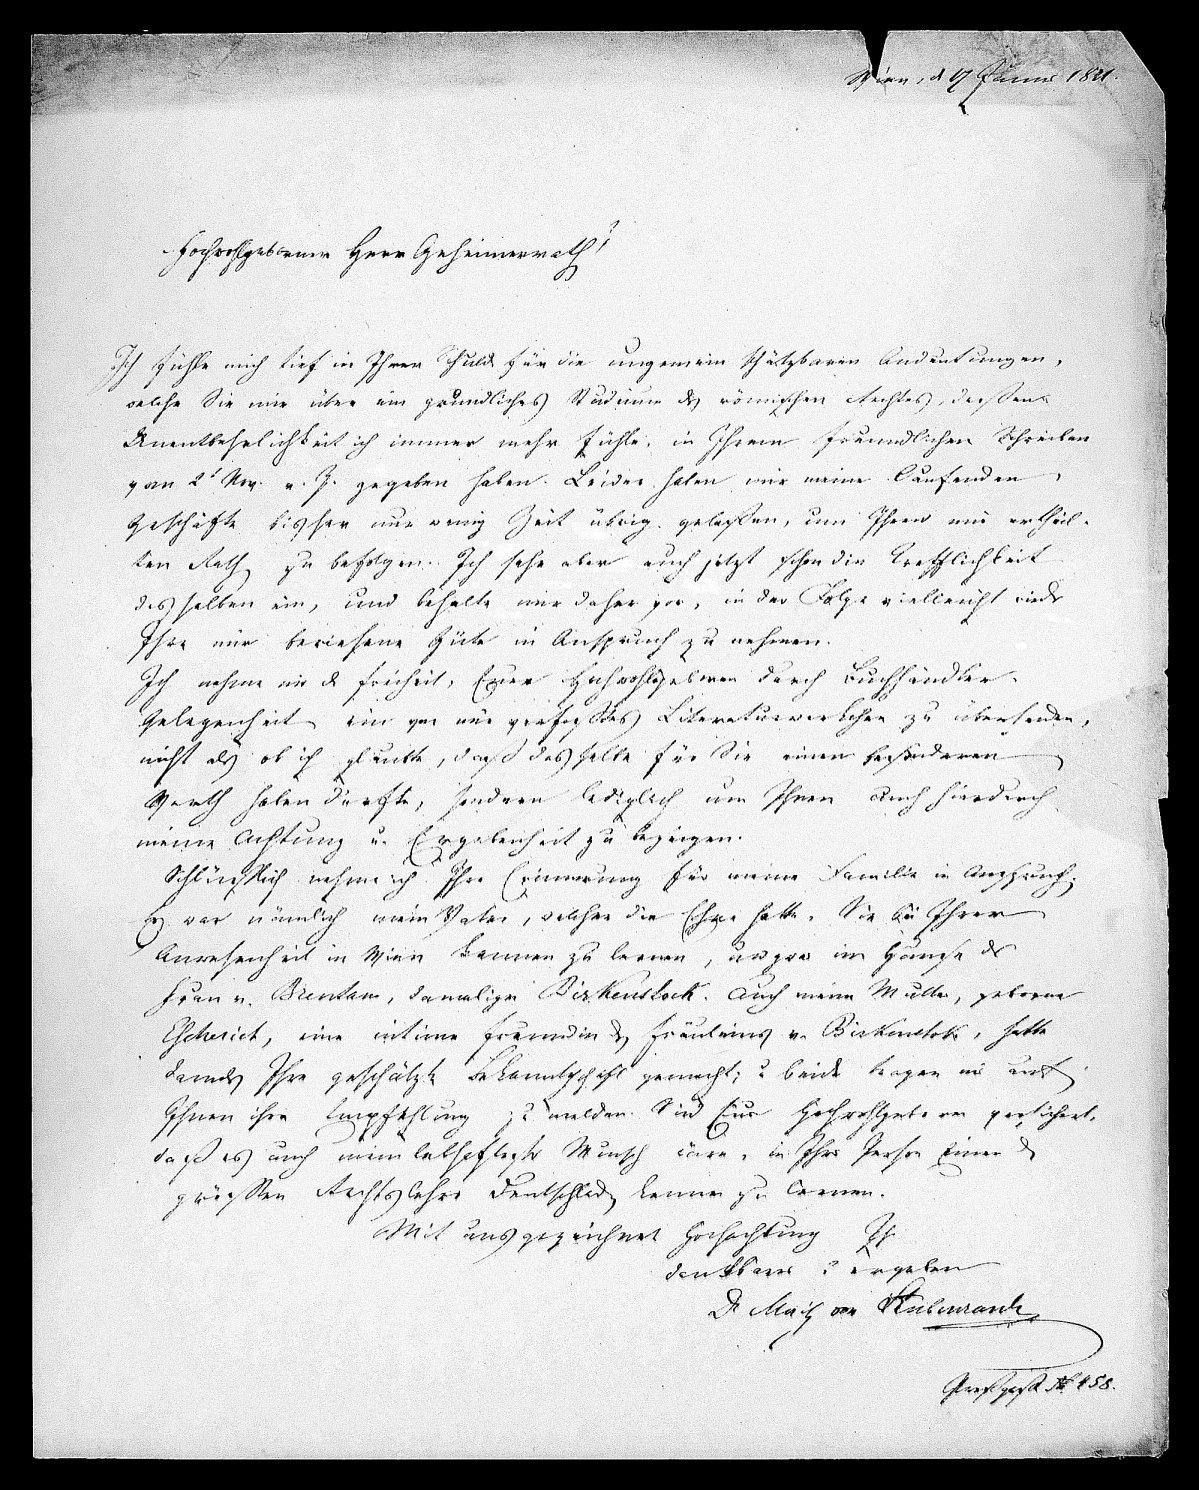 Wien, d. 17 Jänner 1841.
Hochwohlgeborner Herr Geheimerrath!
Ich fühle mich tief in Ihrer Schuld für die ungemein schätzbaren Andeutungen,
welche Sie mir über ein gründliches Studium des römischen Rechtes, dessen
Unentbehrlichkeit ich immer mehr fühle, in Ihrem freundlichen Schreiben
vom 2t Nov. v. J. gegeben haben. Leider haben mir meine laufenden
Geschäfte bisher nur wenig Zeit übrig gelassen, um Ihren mir ertheil-
ten Rath zu befolgen. Ich sehe aber auch jetzt schon die Trefflichkeit
desselben ein, und behalte mir daher vor, in der Folge vielleicht wieder
Ihre mir bewiesene Güte in Anspruch zu nehmen.
Ich nehme mir d. Freiheit, Euer Hochwohlgeboren durch Buchhändler-
Gelegenheit ein von mir verfaßtes Literaturwerkchen zu übersenden,
nicht als ob ich glaubte, daß dasselbe für Sie einen besonderen
Werth haben dürfte, sondern lediglich um Ihnen auch hierdurch
meine Achtung u. Ergebenheit zu bezeigen.
Schlüßlich nehme ich Ihre Erinnerung für meine Familie in Anspruch;
Es war nämlich mein Vater, welcher die Ehre hatte, Sie bei Ihrer
Anwesenheit in Wien kennen zu lernen, u. zwar im Hause der
Frau v. Brentano, damaligen Birkenstock. Auch meine Mutter, geborne
Escherich, eine intime Freundin des Fräuleins v. Birkenstock, hatte
damals Ihre geschätzte Bekanntschaft gemacht; u. beide tragen mir auf
Ihnen ihre Empfehlung zu melden. Sind Euer Hochwohlgeboren versichert,
daß es auch mein lebhaftester Wunsch wäre, in Ihrer Person Einen der
größten Rechtslehrer Deutschlands kennen zu lernen.
Mit ausgezeichneter Hochachtung Ihr
dankbarer u. ergebener
Dr Moriz von Stubenrauch
No 458.